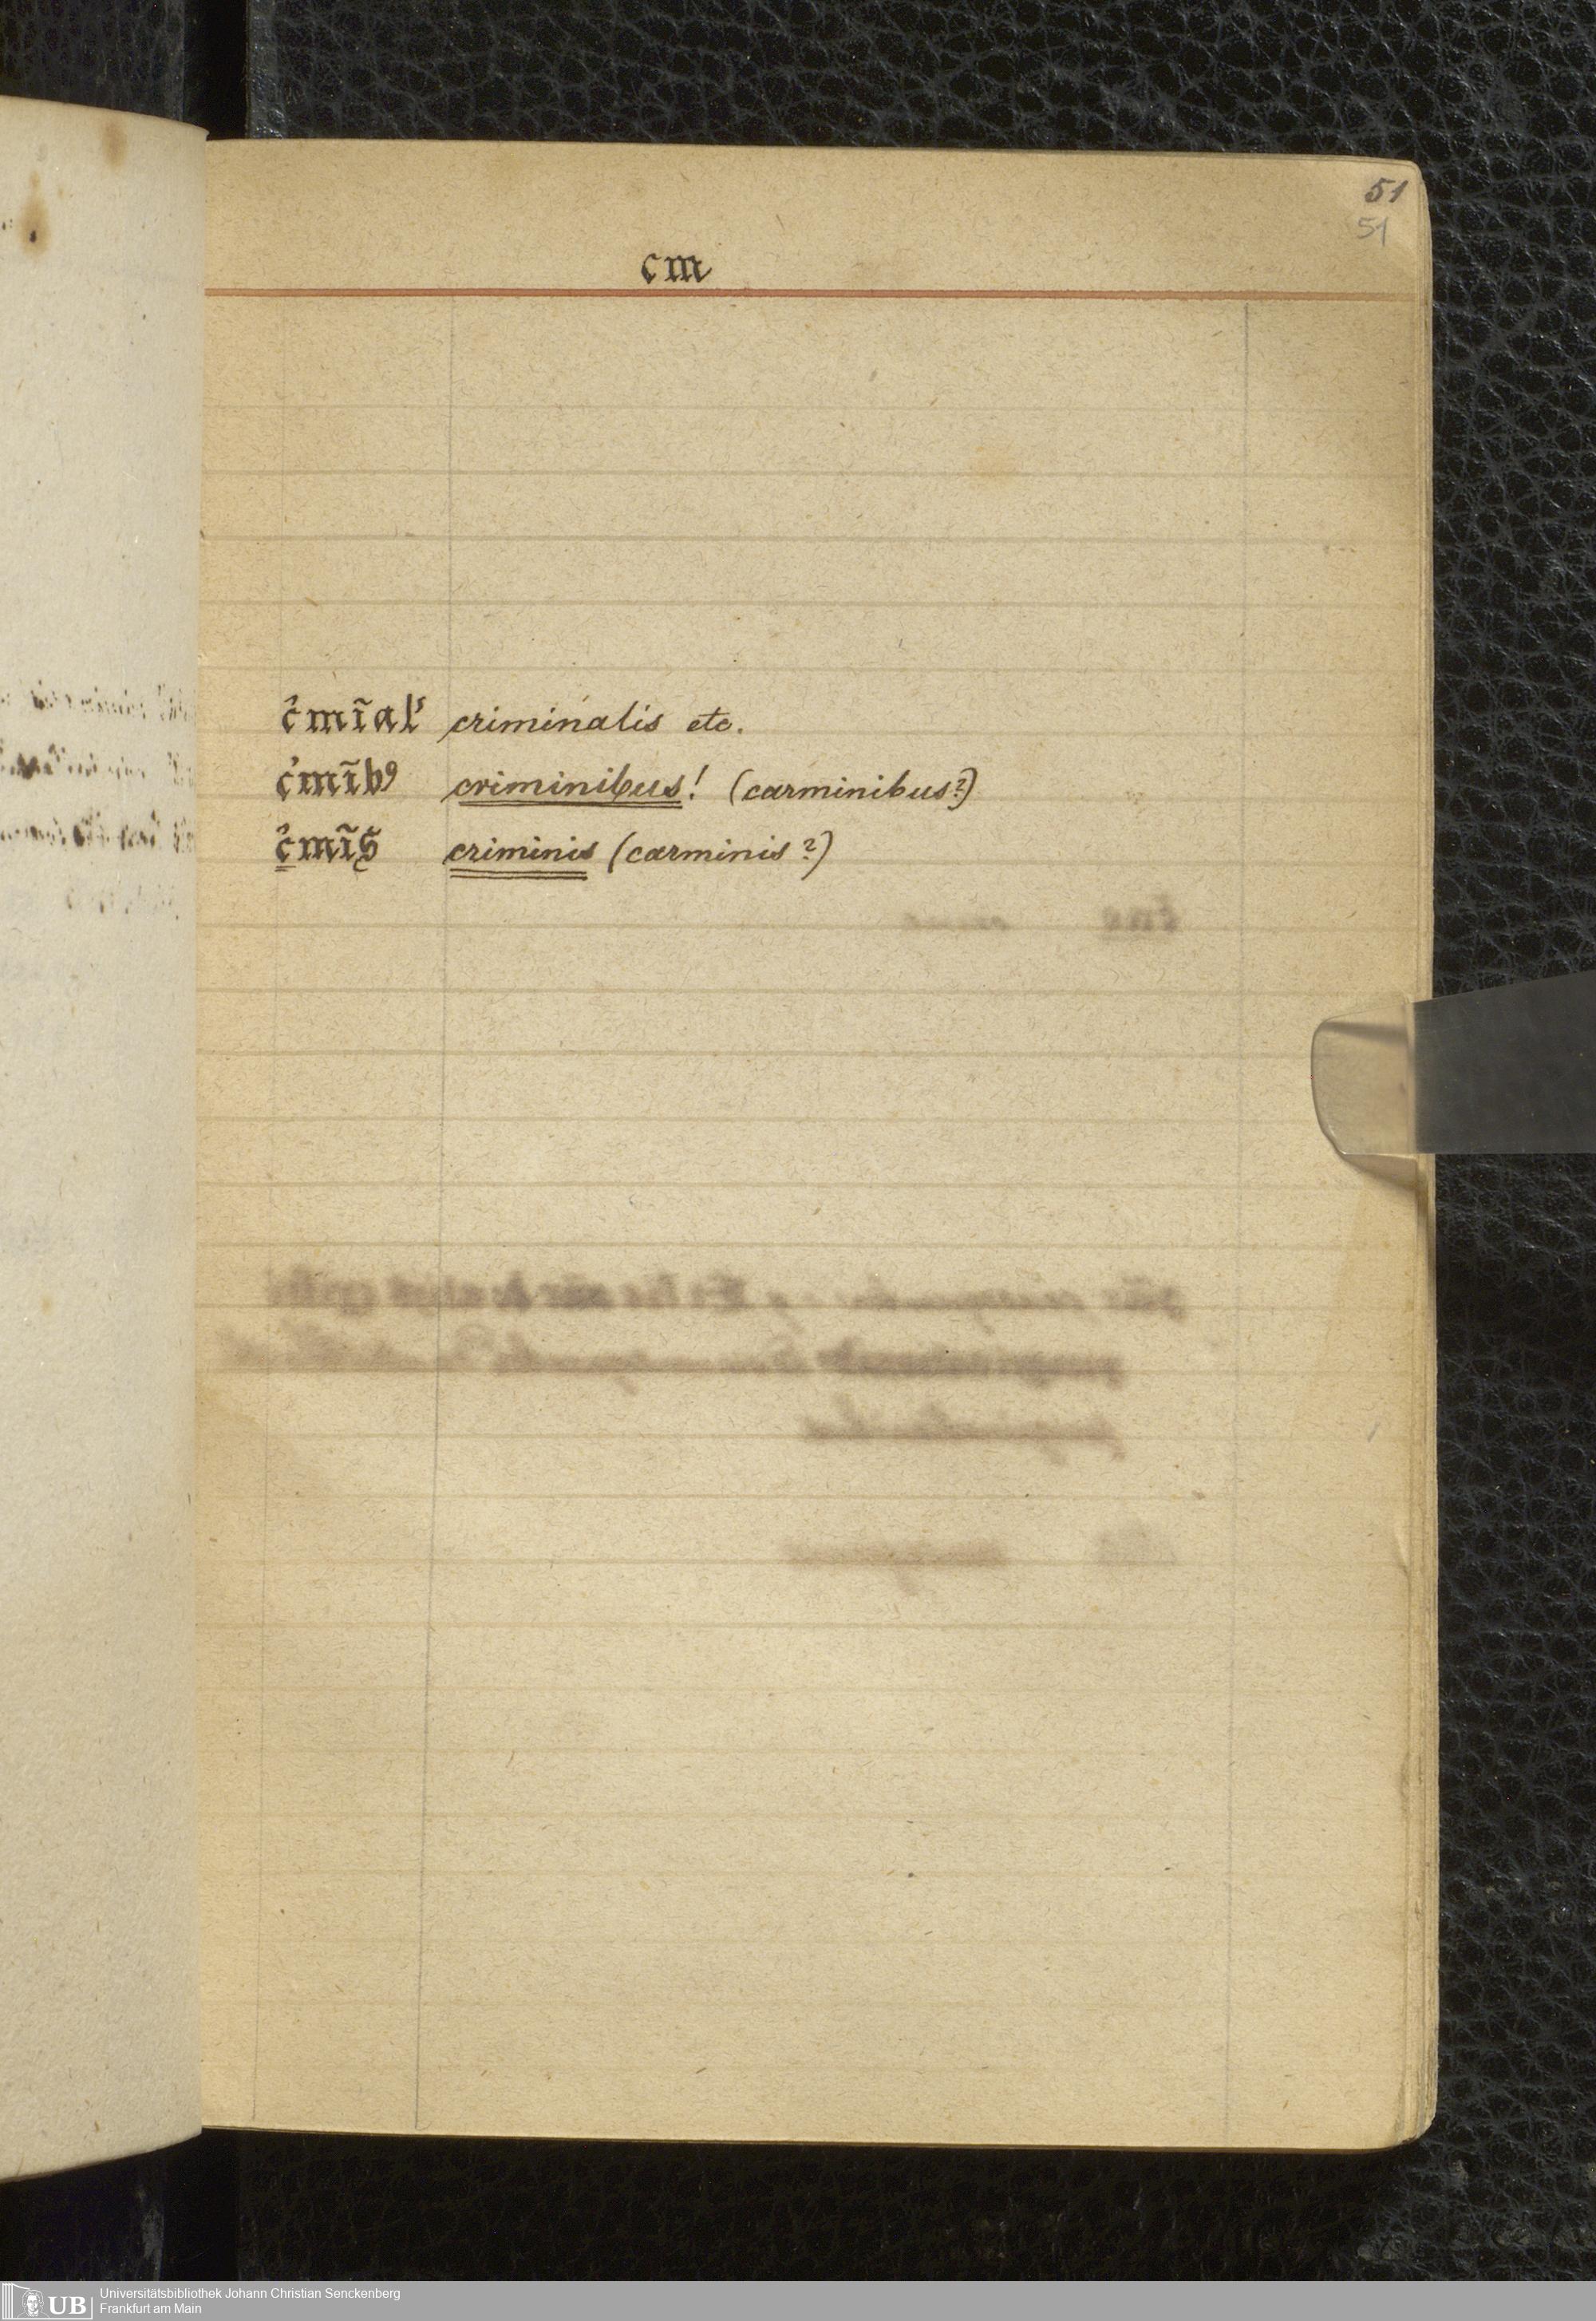 51
51
cm
c̑mı̃alˢ criminalis etc.
c̓mı̃bꝰ criminibus! (carminibus?)
c̑mı̃s criminis (carminis?)
UB Universitätsbibliothek Johann Christian Senckenberg
Frankfurt am Main